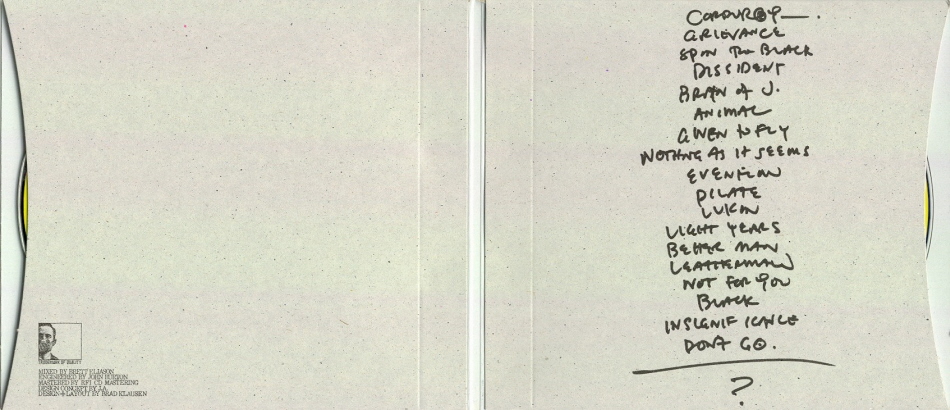 MIXED BY BRETT ELIASON
ENGINEERED BY JOHN BURTON
MASTERED BY RFI CD MASTERING
DESIGN CONCEPT BY J.A.
DESIGN + LAYOUT BY BRAD KLAUSEN
CORDUROY—.
GRIEVANCE
SPIN THE BLACK
DISSIDENT
BRAIN OF J.
ANIMAL
GIVEN TO FLY
NOTHING AS IT SEEMS
EVENFLOW
PILATE
LUKIN
LIGHT YEARS
BETTER MAN
LEATHERMAN
NOT FOR YOU
BLACK
INSIGNIFICANCE
DON'T GO.
?